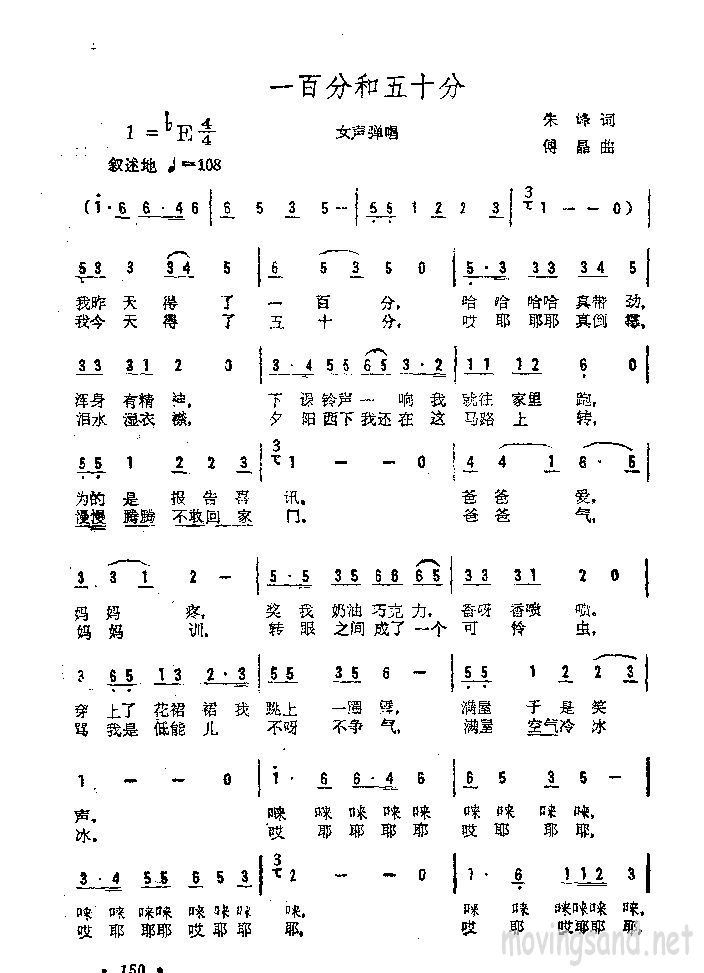 一百分和五十分
1 = ♭E 4/4
女声弹唱
朱 峰 词
叙述地 ♩=108
傅 晶 曲
(1·6 6·46 | 6 5 3 5-- | 55 1 2 23 | 3 1 - - 0)
53 3 34 5 | 6 5 3 5 0 | 5·3 33 34 5 |
我昨 天 得 了 一 百 分, 哈 哈 哈哈 真带 劲,
我今 天 得 了 五 十 分, 哎 耶 耶耶 真倒 霉,
33 31 2 0 | 3·4 55 65 3·2 | 11 12 6 0 |
浑身 有精 神, 下 课 铃声 一 响 我 就往 家里 跑,
泪水 湿衣 襟, 夕 阳 西下 我还 在 这 马路 上 转,
55 1 2 23 | 3 1 - - 0 | 4 4 1 6·5 |
为的 是 报 告喜 讯。 爸 爸 爱,
慢慢 腾腾 不敢 回 家 门。 爸 爸 气,
3 31 2 - | 5·5 35 66 65 | 33 31 2 0 |
妈 妈 疼, 奖 我 奶油 巧克 力, 香呀 香喷 喷。
妈 妈 训, 转 眼 之间 成了 一个 可 怜 虫,
3 65 13 2·3 | 55 35 2 - | 55 1 2 23 |
穿 上了 花裙 裙 我 跳上 一圈 舞, 满屋 子 是 笑
骂 我是 低能 儿 不呀 不争 气, 满屋 空气 冷 冰
1 - - 0 | 1·6 6·46 | 65 3 5 - |
声。 咪 咪 咪 咪 咪 咪 咪 咪 咪,
冰。 哎 耶 耶 耶 哎 耶 耶 耶,
3·4 55 65 3 | 3 2 - - 0 | 1·6 112 3 |
咪 咪 咪咪 咪 咪 咪, 咪, 咪 咪 咪咪咪 咪,
哎 耶 耶耶 哎 耶 耶, 耶。 哎 耶 哎耶耶 耶,
movingsand.net
· 150 ·